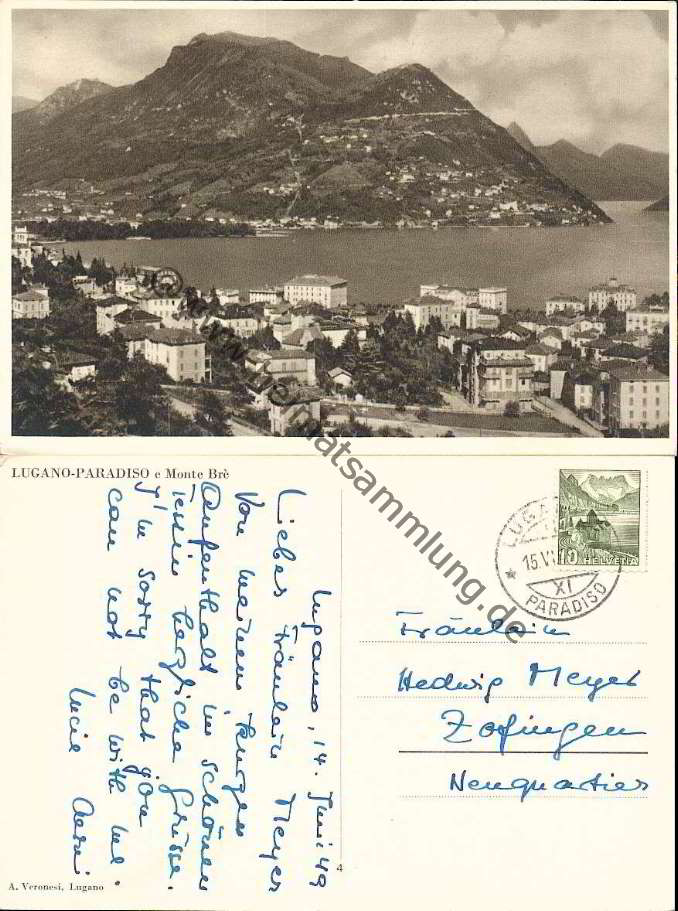 © www.heimatsammlung.de
LUGANO-PARADISO e Monte Brè
Lugano, 14. Juni 49
Liebes Fräulein Meyer
Von meinem kurzen
Aufenthalt im schönen
Tessin herzliche Grüsse.
I'm sorry that you
can not be with me.
Lucie
LUGANO
15.VI
XI
PARADISO
10 HELVETIA
Fräulein
Hedwig Meyer
Zofingen
Neuquartier
4
A. Veronesi, Lugano